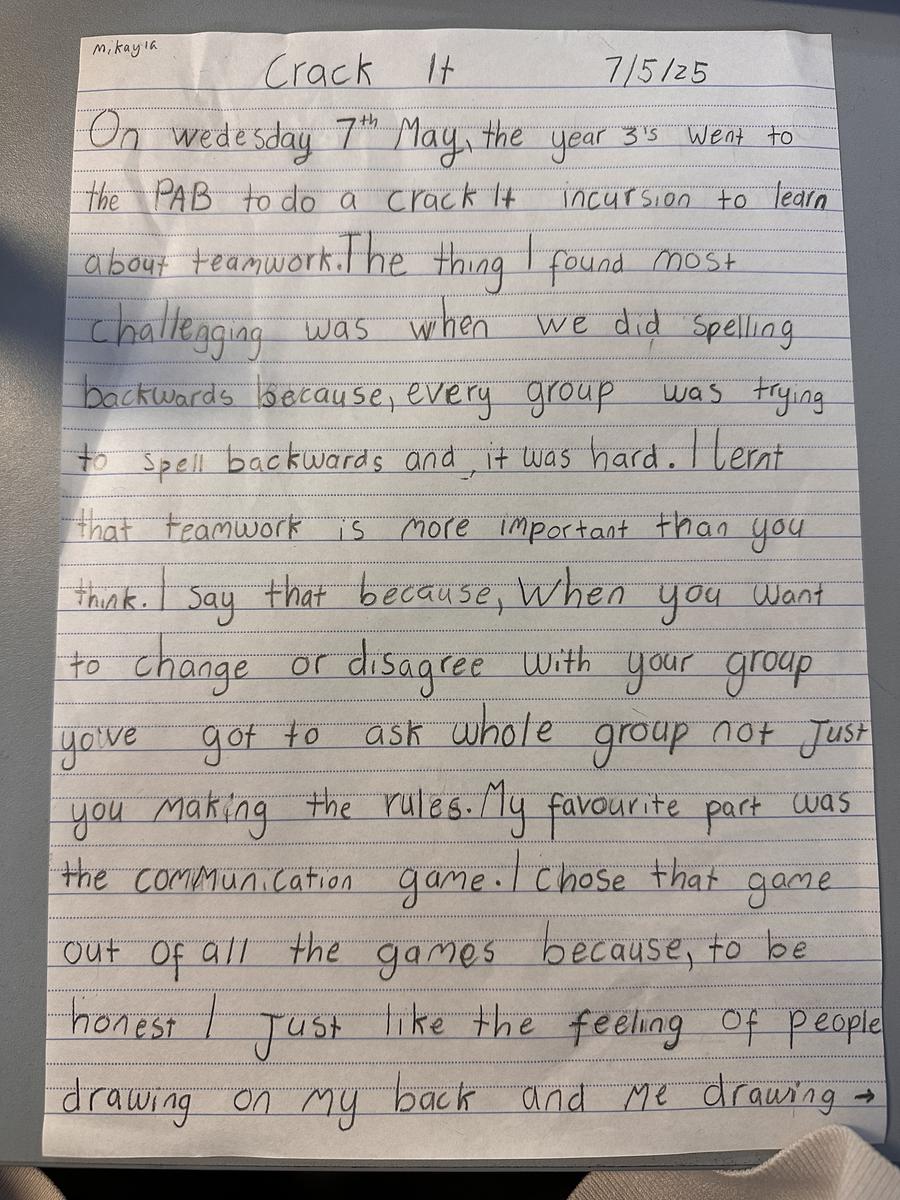 Mikayla
Crack It 7/5/25
On wedesday 7th May, the year 3's went to
the PAB to do a crack It incursion to learn
about teamwork. The thing I found most
challegging was when we did spelling
backwards because, every group was trying
to spell backwards and, it was hard. I lernt
that teamwork is more important than you
think. I say that because, When you want
to change or disagree with your group
you've got to ask whole group not Just
you making the rules. My favourite part was
the communication game. I chose that game
out of all the games because, to be
honest I Just like the feeling of people
drawing on my back and me drawing →